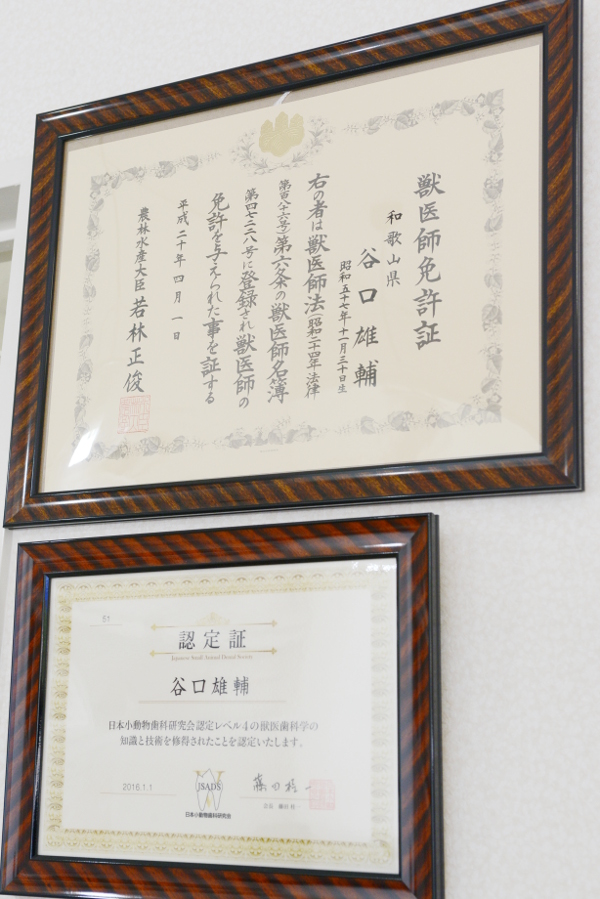 獣医師免許証
和歌山県
谷口雄輔
昭和五十七年十一月三十日生
右の者は獣医師法(昭和二十四年法律
第百八十六号)第六条の獣医師名簿
第四七二二八号に登録され獣医師の
免許を与えられた事を証する
平成二十年四月一日
農林水産大臣 若林正俊
51
認定証
Japanese Small Animal Dental Society
谷口雄輔
日本小動物歯科研究会認定レベル4の獣医歯科学の
知識と技術を修得されたことを認定いたします。
2016.1.1
JSADS
日本小動物歯科研究会
会長 藤田桂一